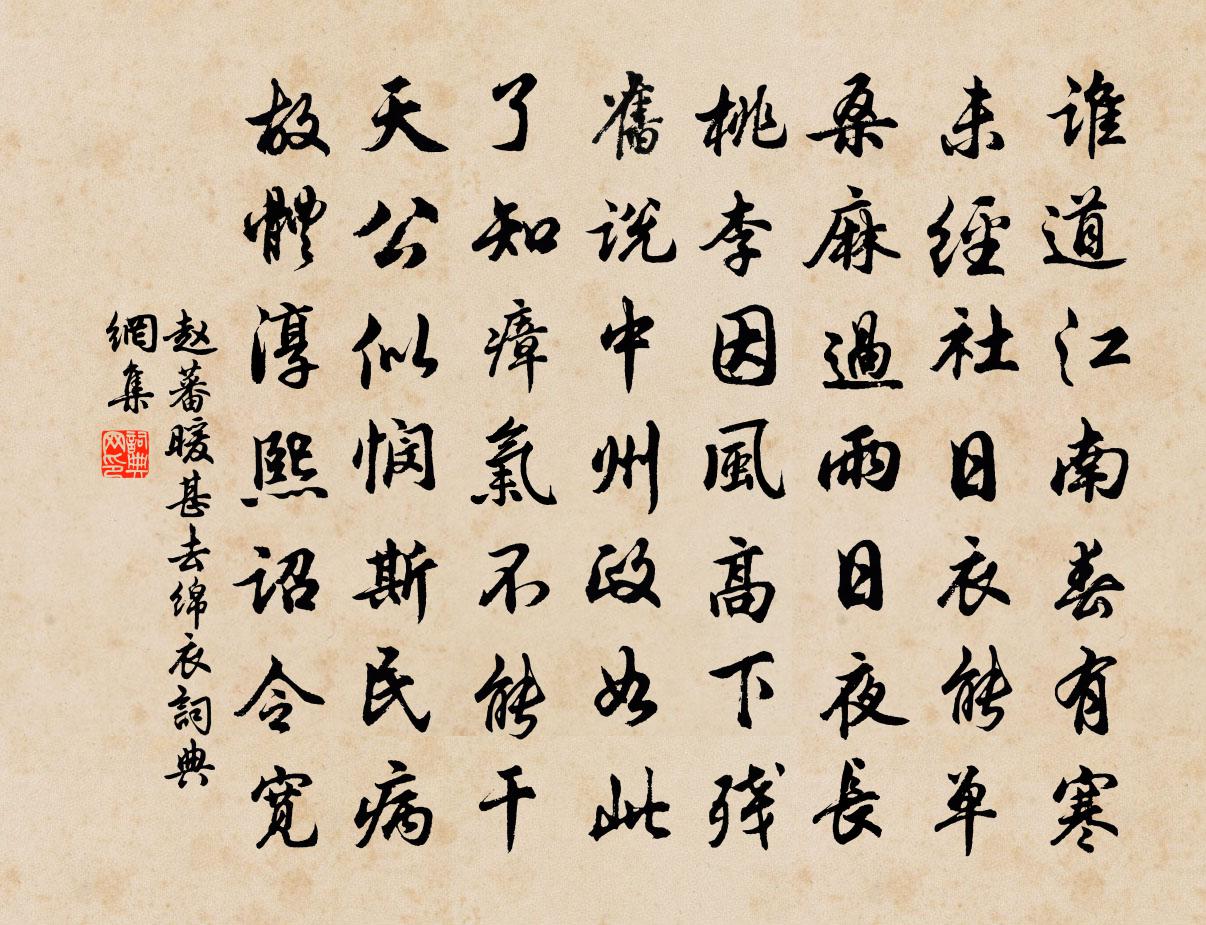 谁道江南春有寒
未經社日衣能单
桑麻過雨日夜長
桃李因風高下残
舊说中州政如此
了知瘴氣不能干
天公似悯斯民病
故體淳熙诏令寛
赵蕃暖甚去绵衣詞典
網集
詞典网印